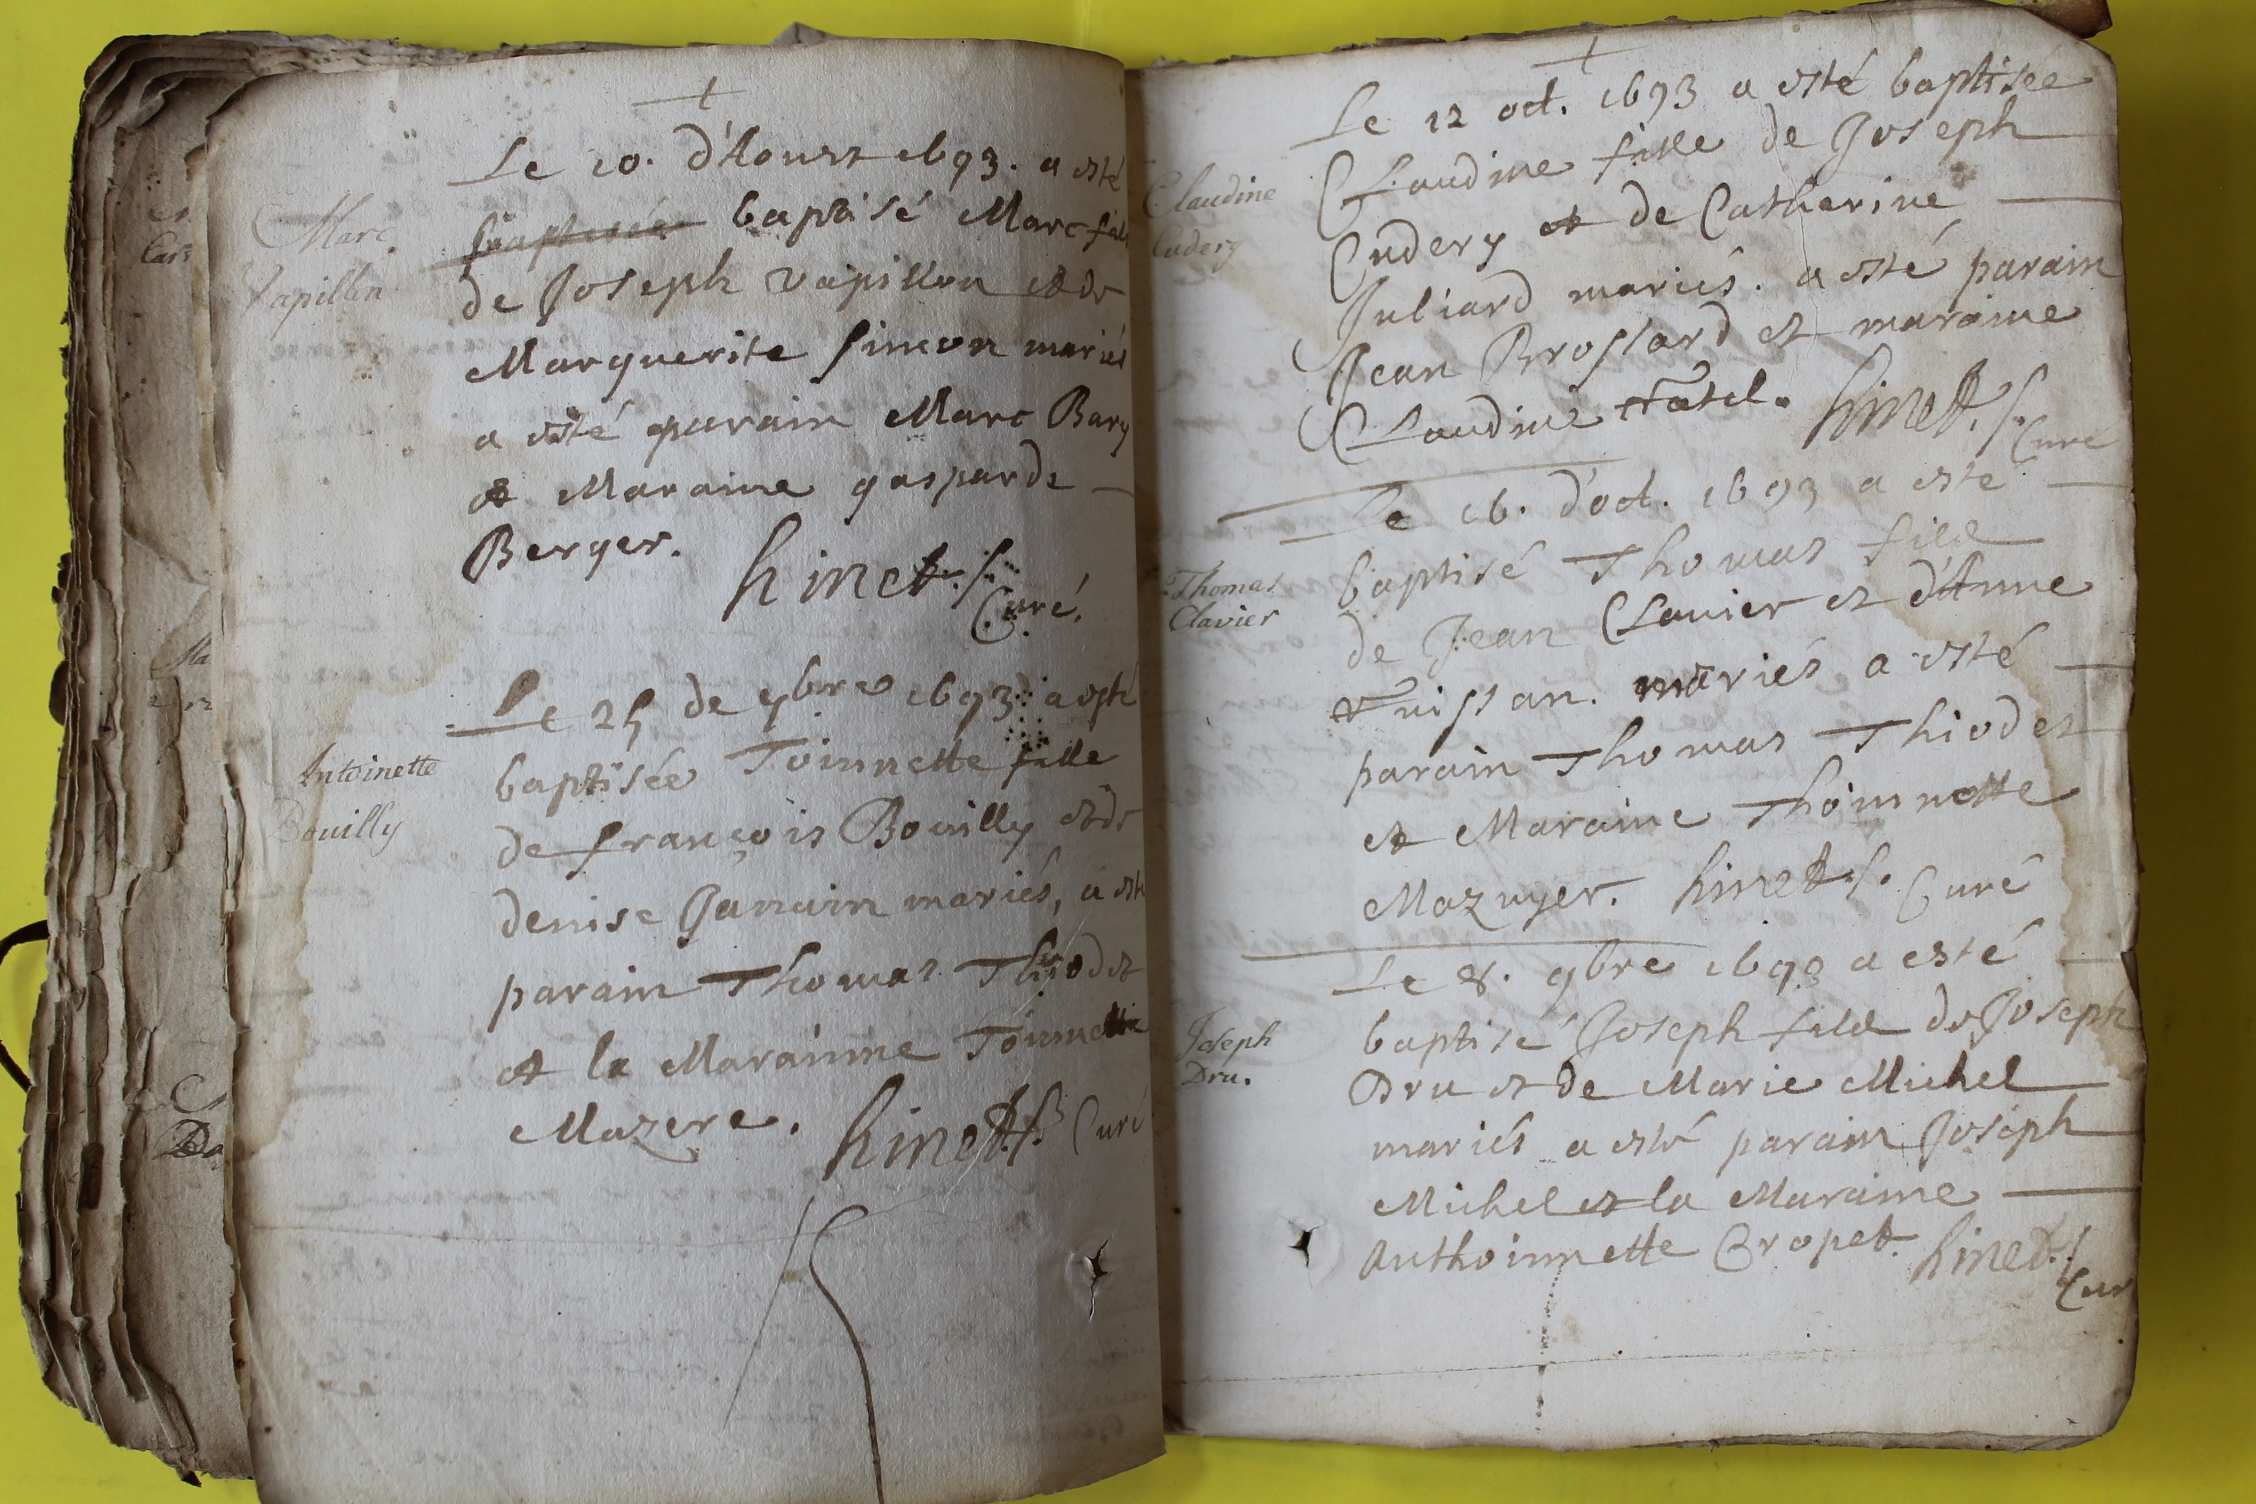 Le 10. d'Aoust 1693. a esté
baptisé Marc fils
Marc
de Joseph Vapillon et de
Vapillon
Marguerite Simeon mariés
a esté parain Marc Bary
et Maraine gasparde
Berger.
hinet
Curé.
Le 25 de 9bre 1693 a esté
baptisée Toinnette fille
Antoinette
de françois Bouilly et de
Bouilly
denise Janain mariés, a esté
parain Thomas Thiodet
et la Marainne Toinnette
Mazere. hinet Curé
Le 12 oct. 1693 a esté baptisée
Claudine fille de Joseph
Claudine
Cudery et de Catherine
Cudery
Juliard mariés. a esté parain
Jean Brossard et maraine
Claudine
hinet
Curé
Le 16. d'oct. 1693 a esté
baptisé Thomas fils
Thomas
Clavier
de Jean Clavier et d'Anne
mariés a esté
parain Thomas Thiodet
et Maraine Thoinnette
Mazuyer. hinet Curé
Le 8. 9bre 1693 a esté
baptisé Joseph fils de Joseph
Joseph
Dru.
Dru et de Marie Michel
mariés a esté parain Joseph
Michel et la Maraine
Anthoinnette Cropet. hinet
Cur